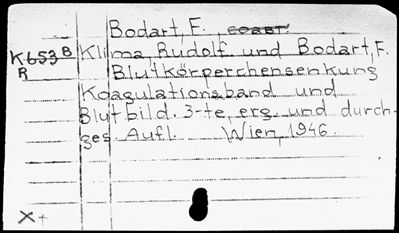 Bodart, F., coaut.
K 653 B Klima, Rudolf und Bodart, F.
R Blutkörperchensenkung
Koagulationsband und
Blutbild. 3-te, erg. und durch-
ges. Aufl. Wien, 1946.
X +